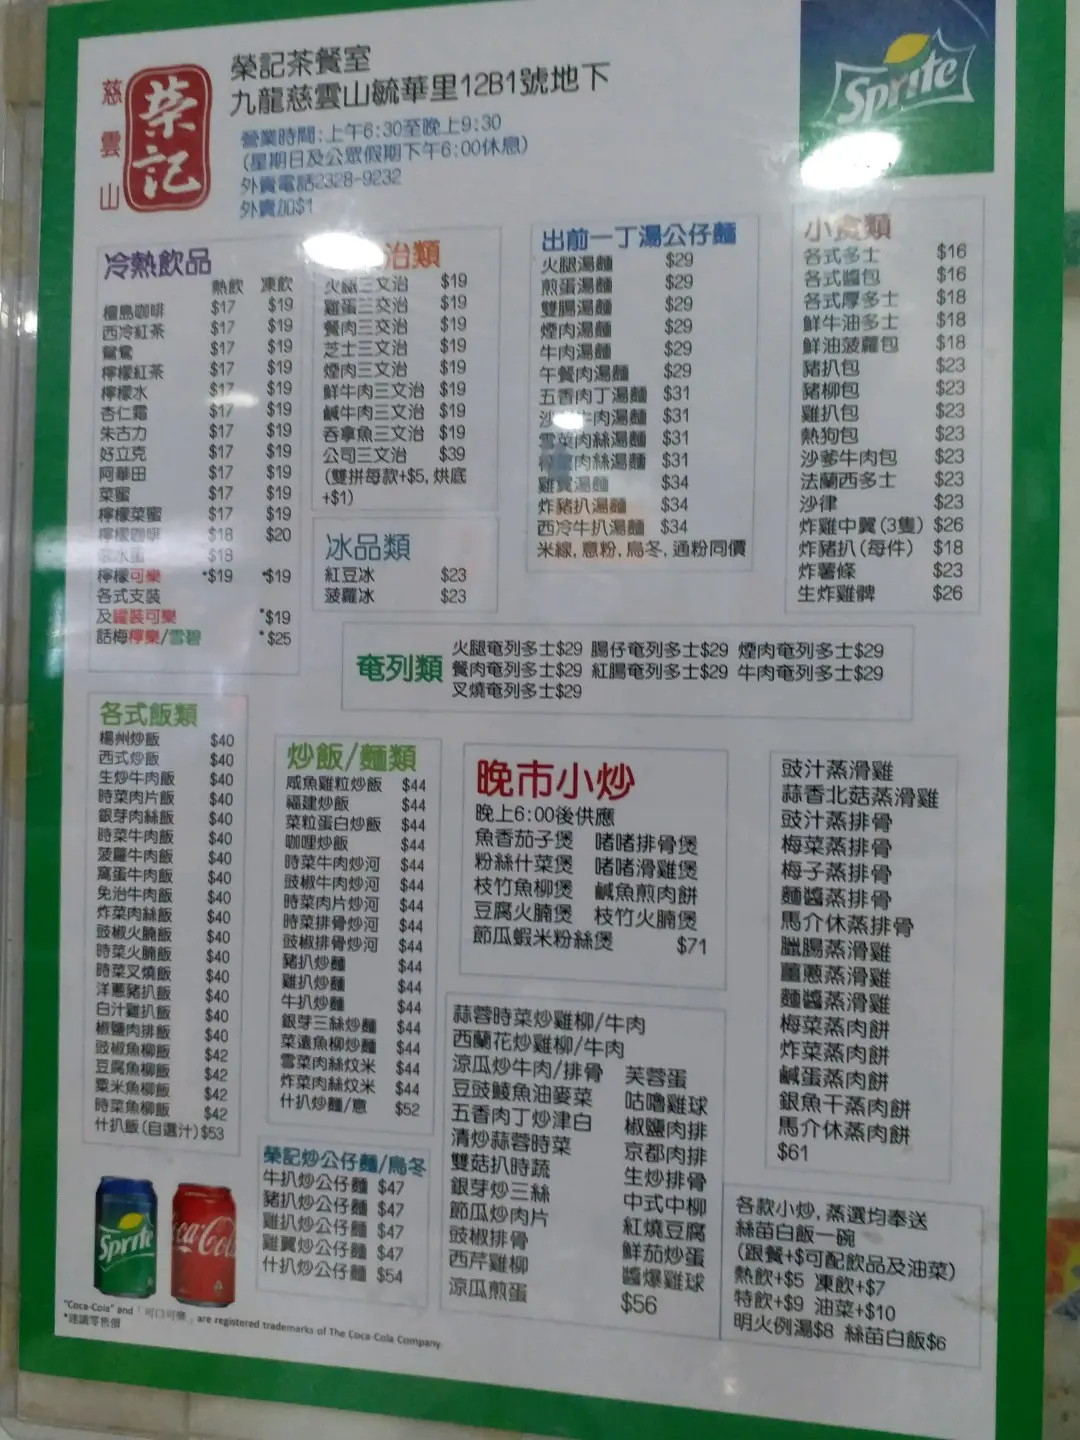 慈雲山
榮記
榮記茶餐室
九龍慈雲山毓華里12B1號地下
營業時間:上午6:30至晚上9:30
(星期日及公眾假期下午6:00休息)
外賣電話2328-9232
外賣加$1
Sprite
冷熱飲品
熱飲 凍飲
檀島咖啡 $17 $19
西冷紅茶 $17 $19
鴛鴦 $17 $19
檸檬紅茶 $17 $19
檸檬水 $17 $19
杏仁霜 $17 $19
朱古力 $17 $19
好立克 $17 $19
阿華田 $17 $19
菜蜜 $17 $19
檸檬菜蜜 $17 $19
檸檬咖啡 $18 $20
$18
檸檬可樂 *$19 *$19
各式支裝
及罐裝可樂 *$19
話梅檸樂/雪碧 *$25
治類
火腿三文治 $19
雞蛋三文治 $19
餐肉三文治 $19
芝士三文治 $19
煙肉三文治 $19
鮮牛肉三文治 $19
鹹牛肉三文治 $19
吞拿魚三文治 $19
公司三文治 $39
(雙拼每款+$5, 烘底
+$1)
冰品類
紅豆冰 $23
菠蘿冰 $23
出前一丁湯公仔麵
火腿湯麵 $29
煎蛋湯麵 $29
雙腸湯麵 $29
煙肉湯麵 $29
牛肉湯麵 $29
午餐肉湯麵 $29
五香肉丁湯麵 $31
沙 牛肉湯麵 $31
雪菜肉絲湯麵 $31
肉絲湯麵 $31
雞翼湯麵 $34
炸豬扒湯麵 $34
西冷牛扒湯麵 $34
米線, 意粉, 烏冬, 通粉同價
小食類
各式多士 $16
各式醬包 $16
各式厚多士 $18
鮮牛油多士 $18
鮮油菠蘿包 $18
豬扒包 $23
豬柳包 $23
雞扒包 $23
熱狗包 $23
沙爹牛肉包 $23
法蘭西多士 $23
沙律 $23
炸雞中翼(3隻) $26
炸豬扒(每件) $18
炸薯條 $23
生炸雞髀 $26
奄列類
火腿奄列多士$29 腸仔奄列多士$29 煙肉奄列多士$29
餐肉奄列多士$29 紅腸奄列多士$29 牛肉奄列多士$29
叉燒奄列多士$29
各式飯類
楊州炒飯 $40
西式炒飯 $40
生炒牛肉飯 $40
時菜肉片飯 $40
銀芽肉絲飯 $40
時菜牛肉飯 $40
菠蘿牛肉飯 $40
窩蛋牛肉飯 $40
免治牛肉飯 $40
炸菜肉絲飯 $40
豉椒火腩飯 $40
時菜火腩飯 $40
時菜叉燒飯 $40
洋蔥豬扒飯 $40
白汁雞扒飯 $40
椒鹽肉排飯 $40
豉椒魚柳飯 $42
豆腐魚柳飯 $42
粟米魚柳飯 $42
時菜魚柳飯 $42
什扒飯(自選汁)$53
炒飯/麵類
咸魚雞粒炒飯 $44
福建炒飯 $44
菜粒蛋白炒飯 $44
咖哩炒飯 $44
時菜牛肉炒河 $44
豉椒牛肉炒河 $44
時菜肉片炒河 $44
時菜排骨炒河 $44
豉椒排骨炒河 $44
豬扒炒麵 $44
雞扒炒麵 $44
牛扒炒麵 $44
銀芽三絲炒麵 $44
菜遠魚柳炒麵 $44
雪菜肉絲炆米 $44
炸菜肉絲炆米 $44
什扒炒麵/意 $52
榮記炒公仔麵/烏冬
牛扒炒公仔麵 $47
豬扒炒公仔麵 $47
雞扒炒公仔麵 $47
雞翼炒公仔麵 $47
什扒炒公仔麵 $54
晚市小炒
晚上6:00後供應
魚香茄子煲 啫啫排骨煲
粉絲什菜煲 啫啫滑雞煲
枝竹魚柳煲 鹹魚煎肉餅
豆腐火腩煲 枝竹火腩煲
節瓜蝦米粉絲煲 $71
蒜蓉時菜炒雞柳/牛肉
西蘭花炒雞柳/牛肉
涼瓜炒牛肉/排骨
豆豉鯪魚油麥菜
五香肉丁炒津白
清炒蒜蓉時菜
雙菇扒時蔬
銀芽炒三絲
節瓜炒肉片
豉椒排骨
西芹雞柳
涼瓜煎蛋
芙蓉蛋
咕嚕雞球
椒鹽肉排
京都肉排
生炒排骨
中式中柳
紅燒豆腐
鮮茄炒蛋
醬爆雞球
$56
豉汁蒸滑雞
蒜香北菇蒸滑雞
豉汁蒸排骨
梅菜蒸排骨
梅子蒸排骨
麵醬蒸排骨
馬介休蒸排骨
臘腸蒸滑雞
薑蔥蒸滑雞
麵醬蒸滑雞
梅菜蒸肉餅
炸菜蒸肉餅
鹹蛋蒸肉餅
銀魚干蒸肉餅
馬介休蒸肉餅
$61
各款小炒, 蒸選均奉送
絲苗白飯一碗
(跟餐+$可配飲品及油菜)
熱飲+$5 凍飲+$7
特飲+$9 油菜+$10
明火例湯$8 絲苗白飯$6
Sprite
Coca-Cola
"Coca-Cola" and「可口可樂」are registered trademarks of The Coca-Cola Company
*建議零售價